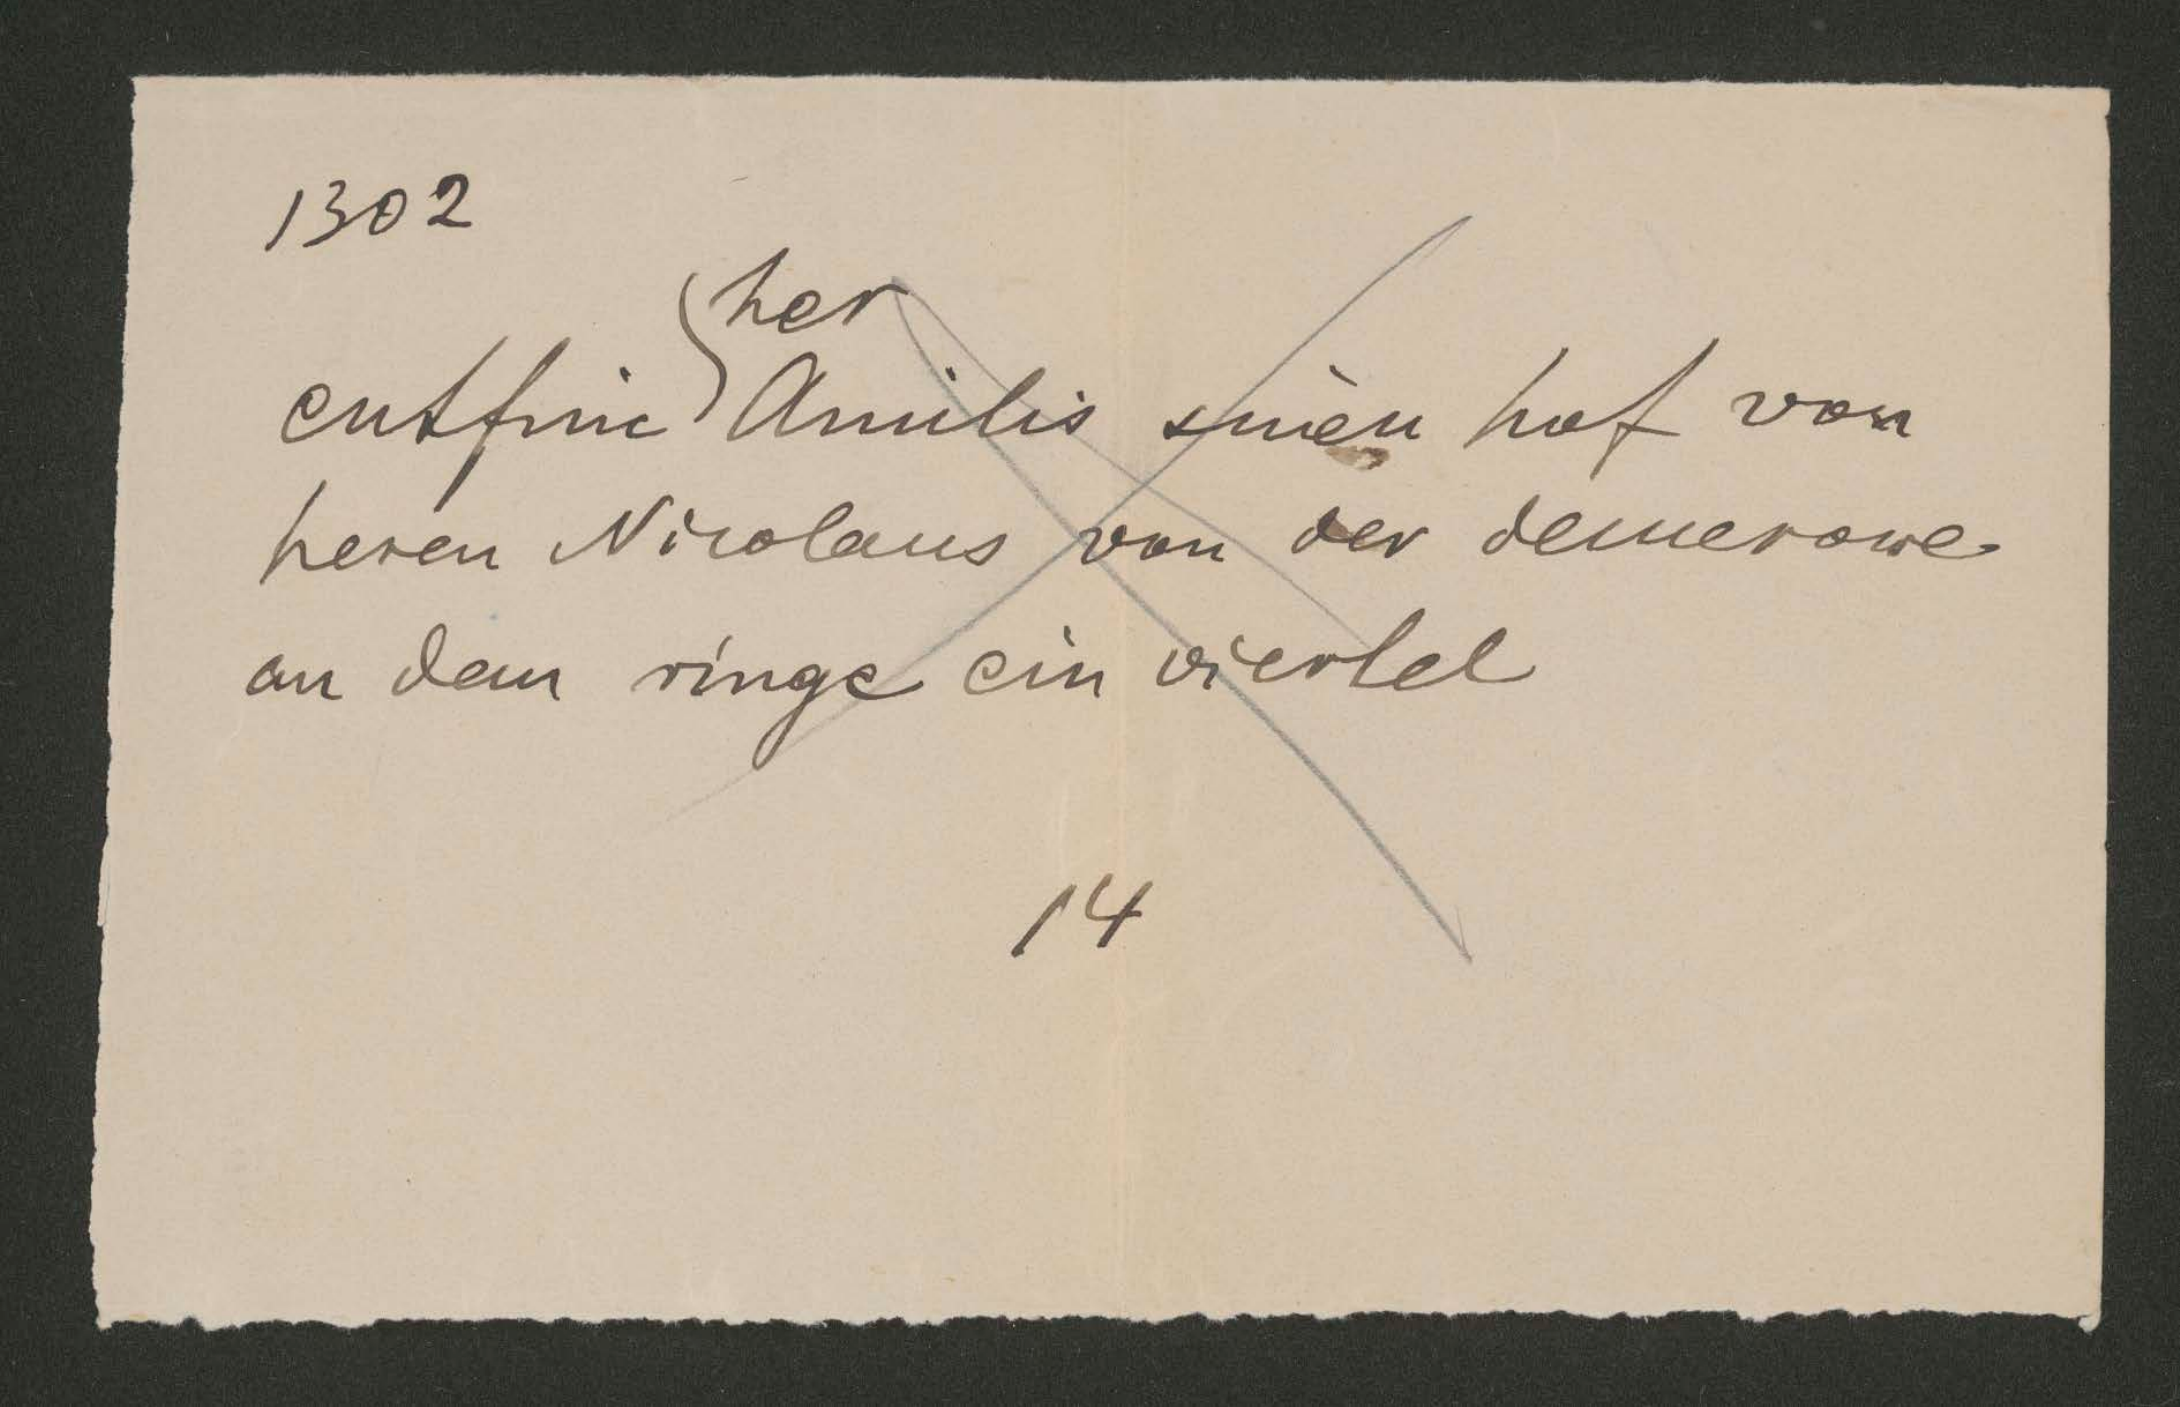 1302
her
entfinc Amilis sinen hof von
heren Nicolaus von der demerowe
an dem ringe ein viertel
14